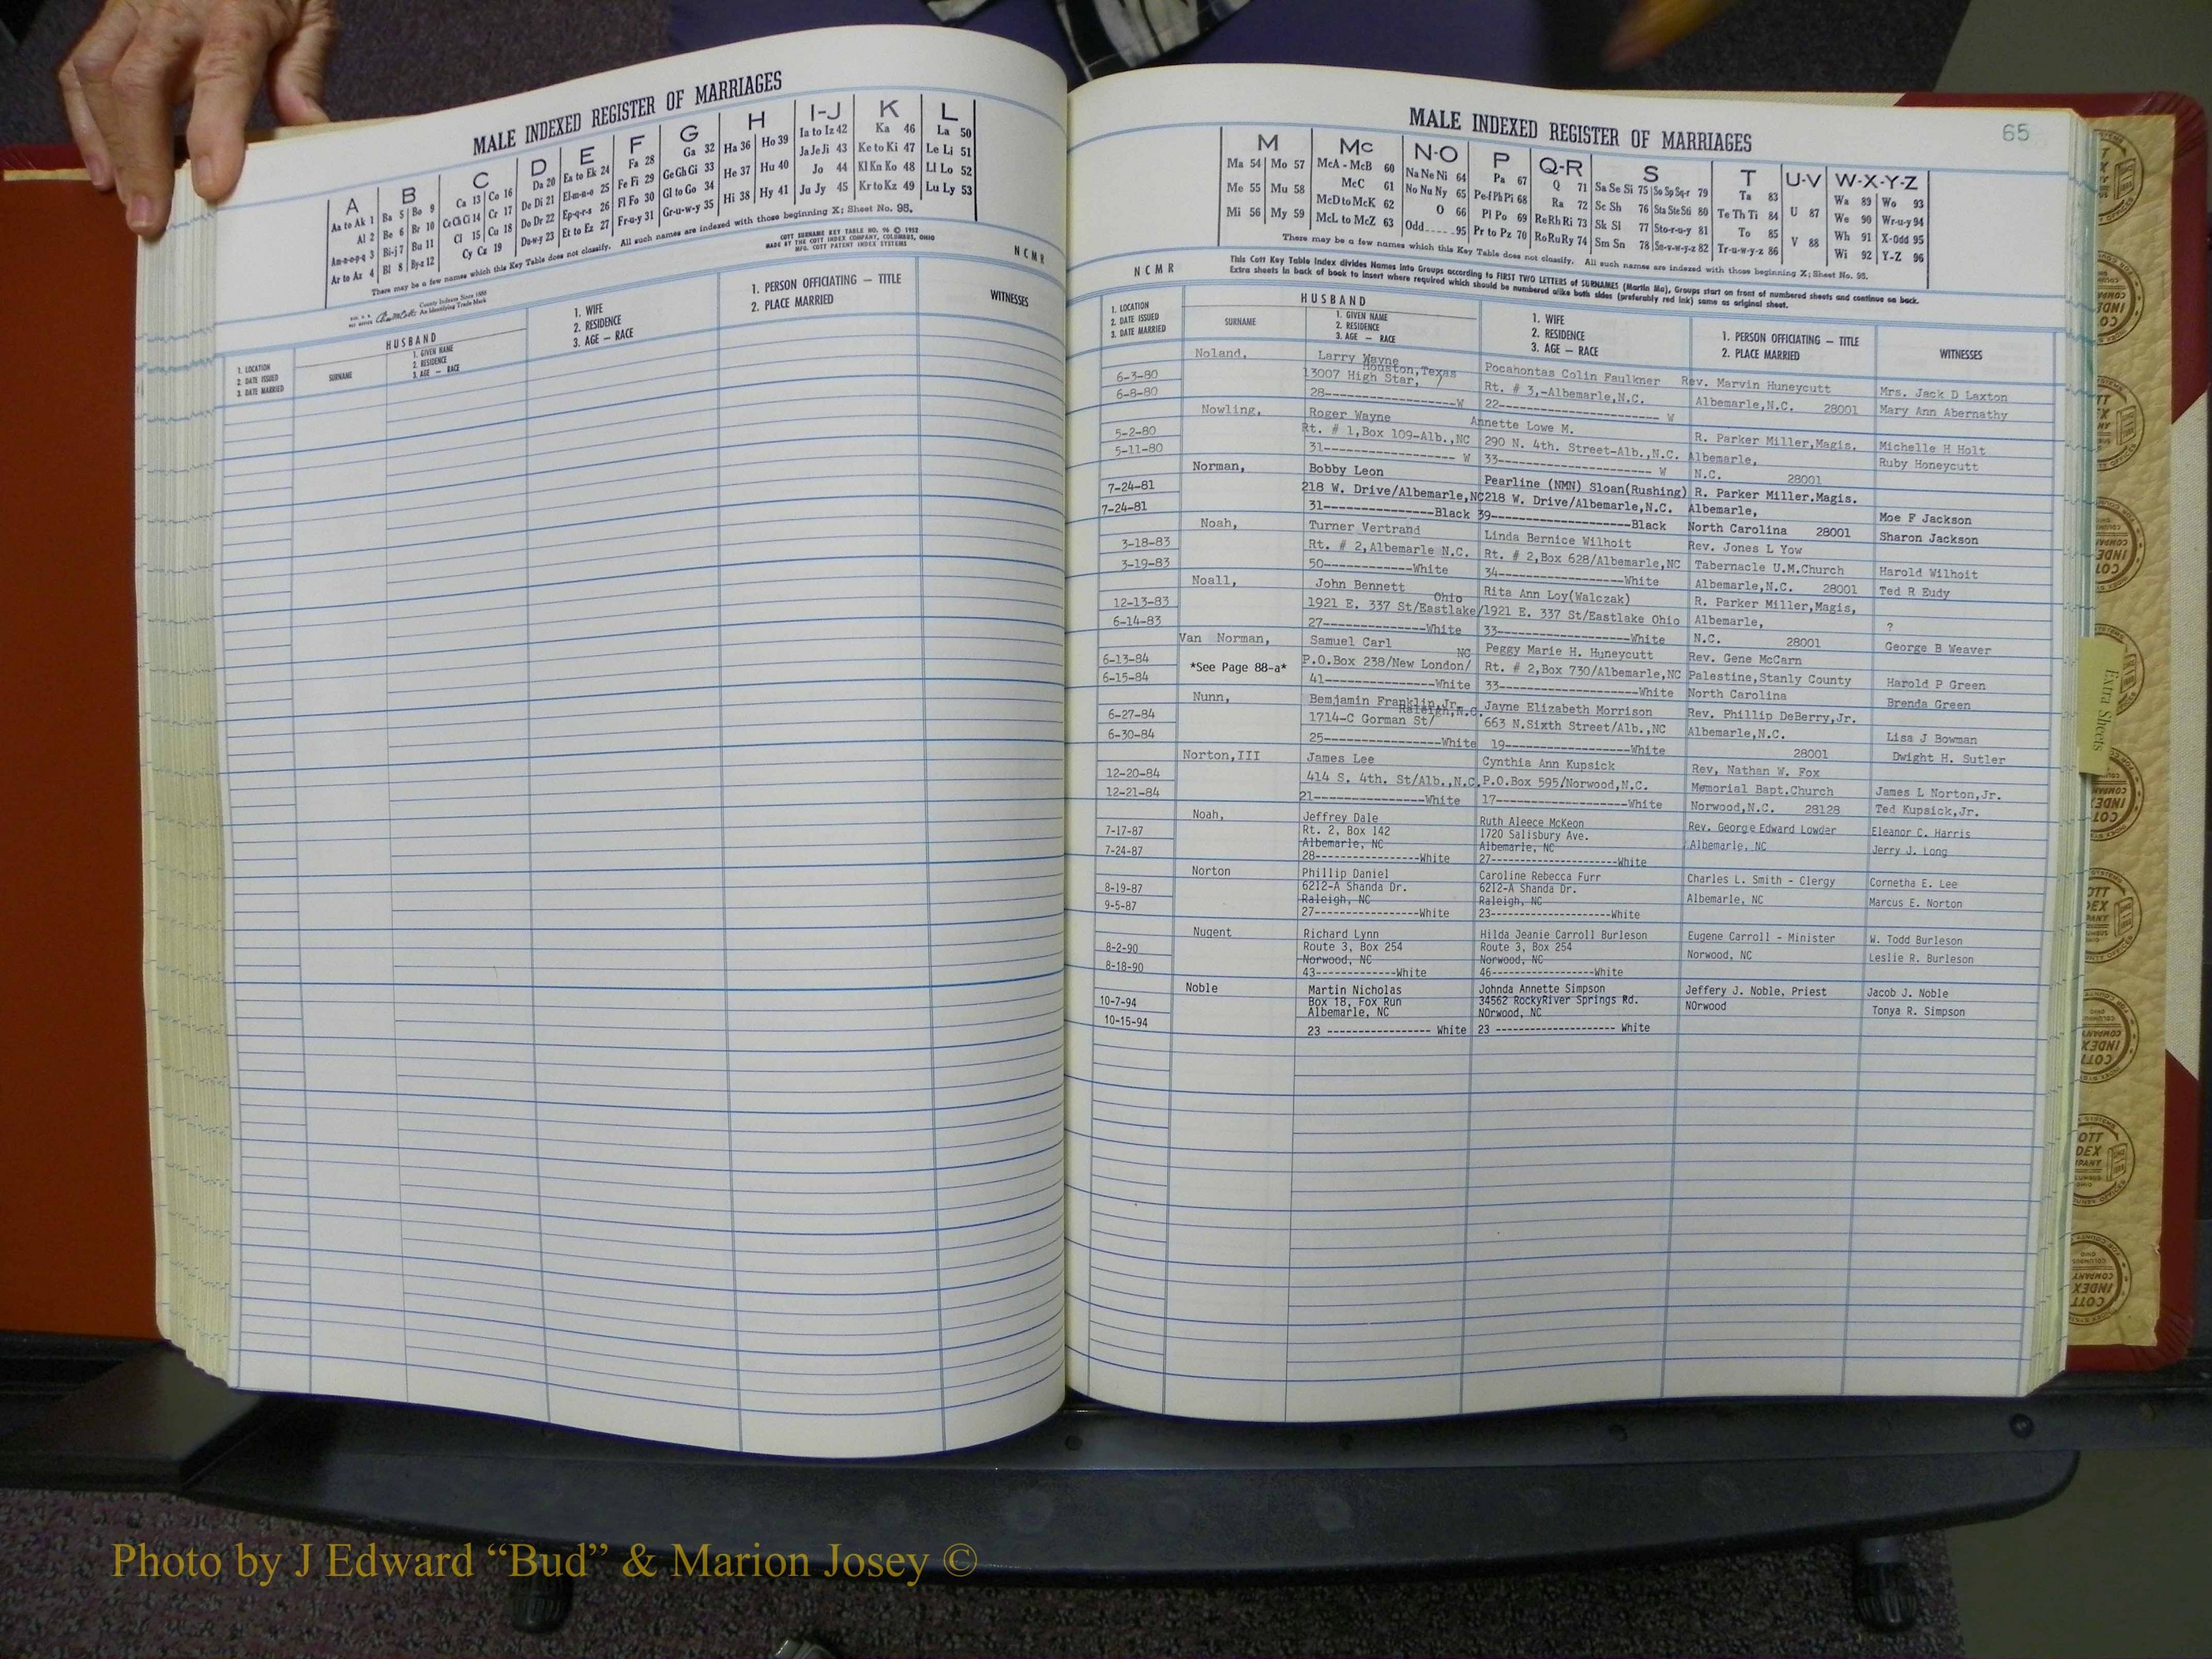 MALE INDEXED REGISTER OF MARRIAGES
A B C D E F G H I-J K L
Aa to Ak 1 Ba 5 Bo 9 Ca 13 Co 16 Da 20 Ea to Ek 24 Fa 28 Ga 32 Ha 36 Ho 39 Ia to Iz 42 Ka 46 La 50
Al 2 Be 6 Br 10 Ce Ch Ci 14 Cr 17 De Di 21 El-m-n-o 25 Fe Fi 29 Ge Gh Gi 33 He 37 Hu 40 Ja Je Ji 43 Ke to Ki 47 Le Li 51
Am-n-o-p-q 3 Bi-j 7 Bu 11 Cl 15 Cu 18 Do Dr 22 Ep-q-r-s 26 Fl Fo 30 Gl to Go 34 Hi 38 Hy 41 Jo 44 Kl Kn Ko 48 Ll Lo 52
Ar to Az 4 Bl 8 By-z 12 Cy Cz 19 Du-w-y 23 Et to Ez 27 Fr-u-y 31 Gr-u-w-y 35 Ju Jy 45 Kr to Kz 49 Lu Ly 53
There may be a few names which this Key Table does not classify. All such names are indexed with those beginning X; Sheet No. 95.
COTT SURNAME KEY TABLE NO. 96 © 1952
MADE BY THE COTT INDEX COMPANY, COLUMBUS, OHIO
MFG. COTT PATENT INDEX SYSTEMS
County Indexes Since 1888
An Identifying Trade Mark
NCMR
1. LOCATION
2. DATE ISSUED
3. DATE MARRIED
HUSBAND
SURNAME
1. GIVEN NAME
2. RESIDENCE
3. AGE — RACE
1. WIFE
2. RESIDENCE
3. AGE — RACE
1. PERSON OFFICIATING — TITLE
2. PLACE MARRIED
WITNESSES
MALE INDEXED REGISTER OF MARRIAGES
65
M Mc N-O P Q-R S T U-V W-X-Y-Z
Ma 54 Mo 57 McA - McB 60 Na Ne Ni 64 Pa 67 Q 71 Sa Se Si 75 So Sp Sq-r 79 Ta 83 U 87 Wa 89 Wo 93
Me 55 Mu 58 McC 61 No Nu Ny 65 Pe-f Ph Pi 68 Ra 72 Sc Sh 76 Sta Ste Sti 80 Te Th Ti 84 V 88 We 90 Wr-u-y 94
Mi 56 My 59 McD to McK 62 O 66 Pl Po 69 Re Rh Ri 73 Sk Sl 77 Sto-r-u-y 81 To 85 Wh 91 X-Odd 95
McL to McZ 63 Odd 95 Pr to Pz 70 Ro Ru Ry 74 Sm Sn 78 Su-v-w-y-z 82 Tr-u-w-y-z 86 Wi 92 Y-Z 96
There may be a few names which this Key Table does not classify. All such names are indexed with those beginning X; Sheet No. 95.
This Cott Key Table Index divides Names into Groups according to FIRST TWO LETTERS of SURNAMES (Martin Ma), Groups start on front of numbered sheets and continue on back.
Extra sheets in back of book to insert where required which should be numbered alike both sides (preferably red ink) same as original sheet.
NCMR
1. LOCATION
2. DATE ISSUED
3. DATE MARRIED
HUSBAND
SURNAME
1. GIVEN NAME
2. RESIDENCE
3. AGE — RACE
1. WIFE
2. RESIDENCE
3. AGE — RACE
1. PERSON OFFICIATING — TITLE
2. PLACE MARRIED
WITNESSES
Noland, Larry Wayne Pocahontas Colin Faulkner Rev. Marvin Huneycutt Mrs. Jack D Laxton
Houston,Texas
6-3-80 13007 High Star, / Rt. # 3,-Albemarle,N.C. Albemarle,N.C. 28001 Mary Ann Abernathy
6-8-80 28-----------------W 22-------------------- W
Nowling, Roger Wayne Annette Lowe M. R. Parker Miller,Magis. Michelle H Holt
5-2-80 Rt. # 1,Box 109-Alb.,NC 290 N. 4th. Street-Alb.,N.C. Albemarle, Ruby Honeycutt
5-11-80 31----------------- W 33-------------------- W N.C. 28001
Norman, Bobby Leon Pearline (NMN) Sloan(Rushing) R. Parker Miller.Magis.
7-24-81 218 W. Drive/Albemarle,NC 218 W. Drive/Albemarle,N.C. Albemarle, Moe F Jackson
7-24-81 31---------------Black 39--------------------Black North Carolina 28001 Sharon Jackson
Noah, Turner Vertrand Linda Bernice Wilhoit Rev. Jones L Yow
3-18-83 Rt. # 2,Albemarle N.C. Rt. # 2,Box 628/Albemarle,NC Tabernacle U.M.Church Harold Wilhoit
3-19-83 50------------White 34------------------White Albemarle,N.C. 28001 Ted R Eudy
Noall, John Bennett Rita Ann Loy(Walczak) R. Parker Miller,Magis,
Ohio
12-13-83 1921 E. 337 St/Eastlake/ 1921 E. 337 St/Eastlake Ohio Albemarle, ?
6-14-83 27--------------White 33--------------------White N.C. 28001 George B Weaver
Van Norman, Samuel Carl Peggy Marie H. Huneycutt Rev. Gene McCarn
NC
6-13-84 *See Page 88-a* P.O.Box 238/New London/ Rt. # 2,Box 730/Albemarle,NC Palestine,Stanly County Harold P Green
6-15-84 41--------------White 33-------------------White North Carolina Brenda Green
Nunn, Bemjamin Franklin,Jr. Jayne Elizabeth Morrison Rev. Phillip DeBerry,Jr.
Raleigh,N.C.
6-27-84 1714-C Gorman St/ 663 N.Sixth Street/Alb.,NC Albemarle,N.C. Lisa J Bowman
6-30-84 25---------------White 19------------------White 28001 Dwight H. Sutler
Norton,III James Lee Cynthia Ann Kupsick Rev, Nathan W. Fox
12-20-84 414 S. 4th. St/Alb.,N.C. P.O.Box 595/Norwood,N.C. Memorial Bapt.Church James L Norton,Jr.
12-21-84 21---------------White 17------------------White Norwood,N.C. 28128 Ted Kupsick,Jr.
Noah, Jeffrey Dale Ruth Aleece McKeon Rev. George Edward Lowder Eleanor C. Harris
7-17-87 Rt. 2, Box 142 1720 Salisbury Ave.
Albemarle, NC Albemarle, NC Albemarle, NC Jerry J. Long
7-24-87 28-----------------White 27---------------------White
Norton Phillip Daniel Caroline Rebecca Furr Charles L. Smith - Clergy Cornetha E. Lee
8-19-87 6212-A Shanda Dr. 6212-A Shanda Dr.
9-5-87 Raleigh, NC Raleigh, NC Albemarle, NC Marcus E. Norton
27-----------------White 23--------------------White
Nugent Richard Lynn Hilda Jeanie Carroll Burleson Eugene Carroll - Minister W. Todd Burleson
8-2-90 Route 3, Box 254 Route 3, Box 254
8-18-90 Norwood, NC Norwood, NC Norwood, NC Leslie R. Burleson
43-------------White 46-----------------White
Noble Martin Nicholas Johnda Annette Simpson Jeffery J. Noble, Priest Jacob J. Noble
10-7-94 Box 18, Fox Run 34562 RockyRiver Springs Rd. NOrwood Tonya R. Simpson
10-15-94 Albemarle, NC NOrwood, NC
23 ----------------- White 23 ------------------- White
Extra Sheets
Photo by J Edward “Bud” & Marion Josey ©